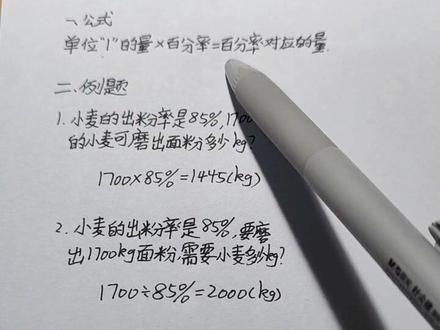 一、公式
单位"1"的量×百分率=百分率对应的量.
二.例题
1.小麦的出粉率是85%,1700
的小麦可磨出面粉多少kg?
1700×85%=1445(kg)
2.小麦的出粉率是85%,要磨
出1700kg面粉,需要小麦多少kg?
1700÷85%=2000(kg)